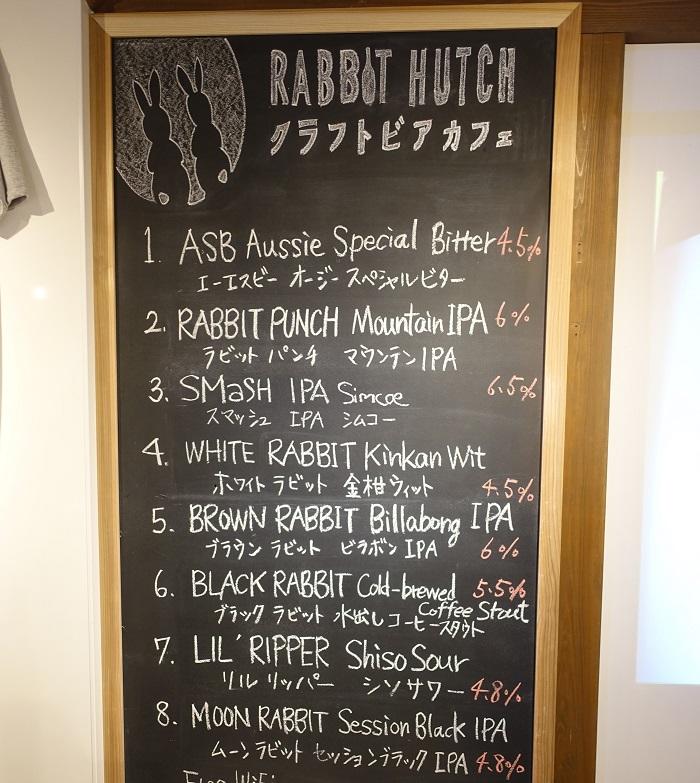 RABBIT HUTCH
クラフトビアカフェ
1. ASB Aussie Special Bitter 4.5%
エーエスビー オージー スペシャルビター
2. RABBIT PUNCH Mountain IPA 6%
ラビット パンチ マウンテン IPA
3. SMaSH IPA Simcoe 6.5%
スマッシュ IPA シムコー
4. WHITE RABBIT Kinkan Wit
ホワイト ラビット 金柑 ウィット 4.5%
5. BROWN RABBIT Billabong IPA
ブラウン ラビット ビラボン IPA 6%
6. BLACK RABBIT Cold-brewed 5.5%
Coffee Stout
ブラック ラビット 水出しコーヒースタウト
7. LIL' RIPPER Shiso Sour
リル リッパー シソサワー 4.8%
8. MOON RABBIT Session Black IPA
ムーン ラビット セッションブラック IPA 4.8%
Free WiFi